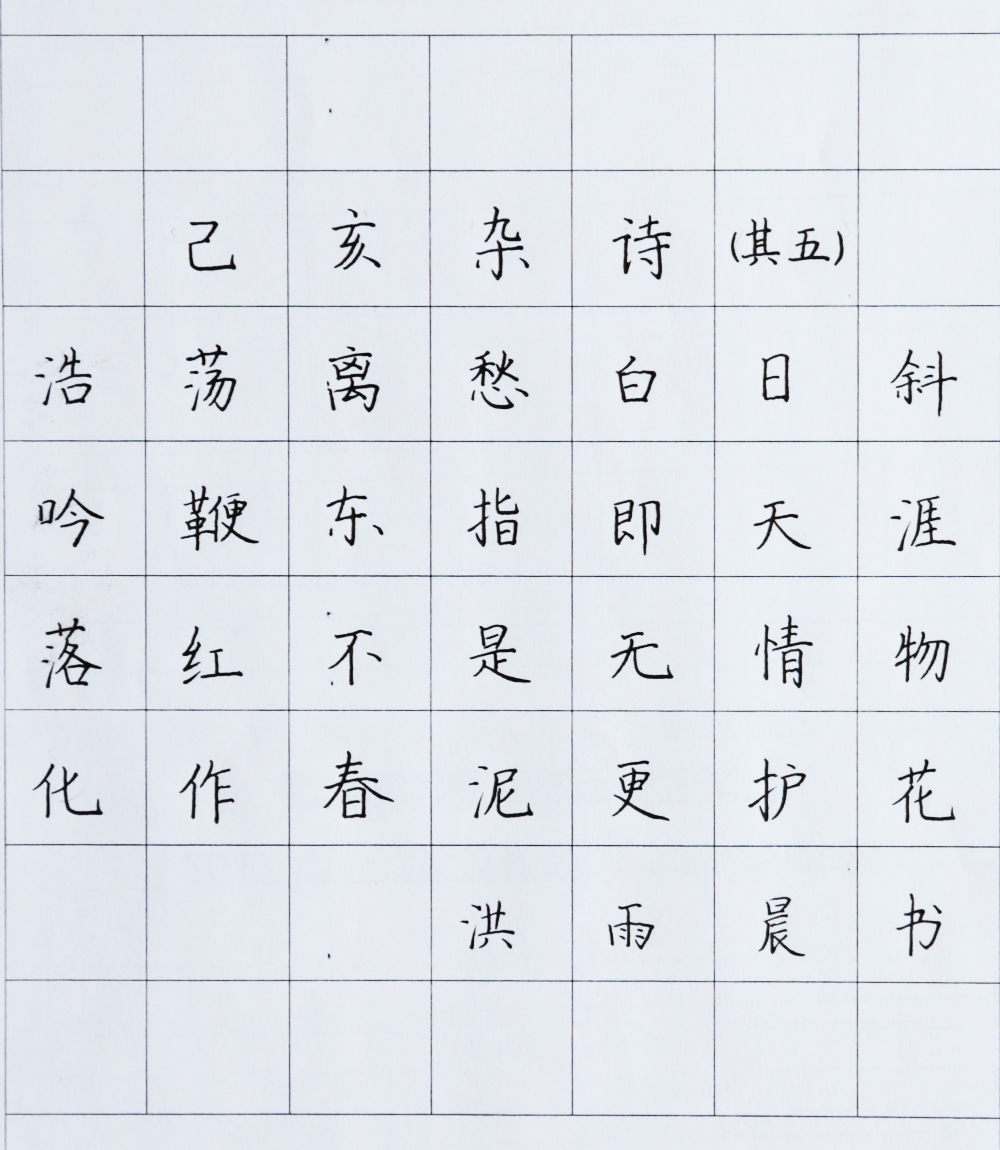 己亥杂诗(其五)
浩荡离愁白日斜
吟鞭东指即天涯
落红不是无情物
化作春泥更护花
洪雨晨书